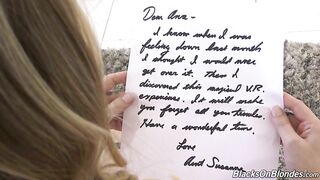 Dear Ana -
I know when I was
feeling down last month
I thought I would never
get over it. Then I
discovered this magical V.R.
experience. It will make
you forget all your troubles.
Have a wonderful time.
Love
Aunt Susanne
BlacksOnBlondes.com